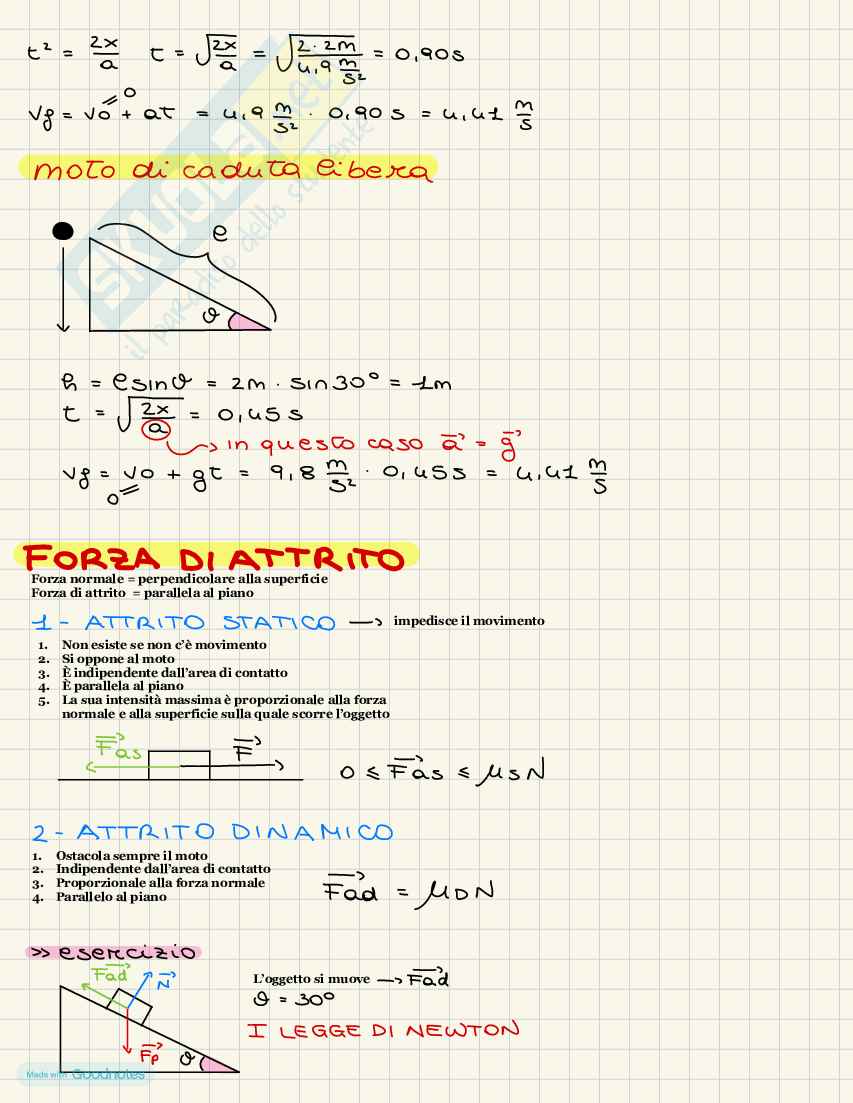 t² = 2x/a t = √(2x/a) = √(2·2m / 4,9 m/s²) = 0,90s
vf = v0 + at = 4,9 m/s² · 0,90 s = 4,41 m/s
0
moto di caduta libera
l
θ
h = l sinθ = 2m · sin30° = 1m
t = √(2x/a) = 0,45 s
in questo caso a⃗ = g⃗
vf = v0 + gt = 9,8 m/s² · 0,45s = 4,41 m/s
0
FORZA DI ATTRITO
Forza normale = perpendicolare alla superficie
Forza di attrito = parallela al piano
1 - ATTRITO STATICO → impedisce il movimento
1. Non esiste se non c'è movimento
2. Si oppone al moto
3. È indipendente dall'area di contatto
4. È parallela al piano
5. La sua intensità massima è proporzionale alla forza
normale e alla superficie sulla quale scorre l'oggetto
F⃗as F⃗
0 ≤ F⃗as ≤ μsN
2 - ATTRITO DINAMICO
1. Ostacola sempre il moto
2. Indipendente dall'area di contatto
3. Proporzionale alla forza normale
4. Parallelo al piano
F⃗ad = μDN
>> esercizio
F⃗ad N⃗
L'oggetto si muove → F⃗ad
θ = 30°
I LEGGE DI NEWTON
F⃗p θ
Made with Goodnotes
skuola.net
il paradiso dello studente